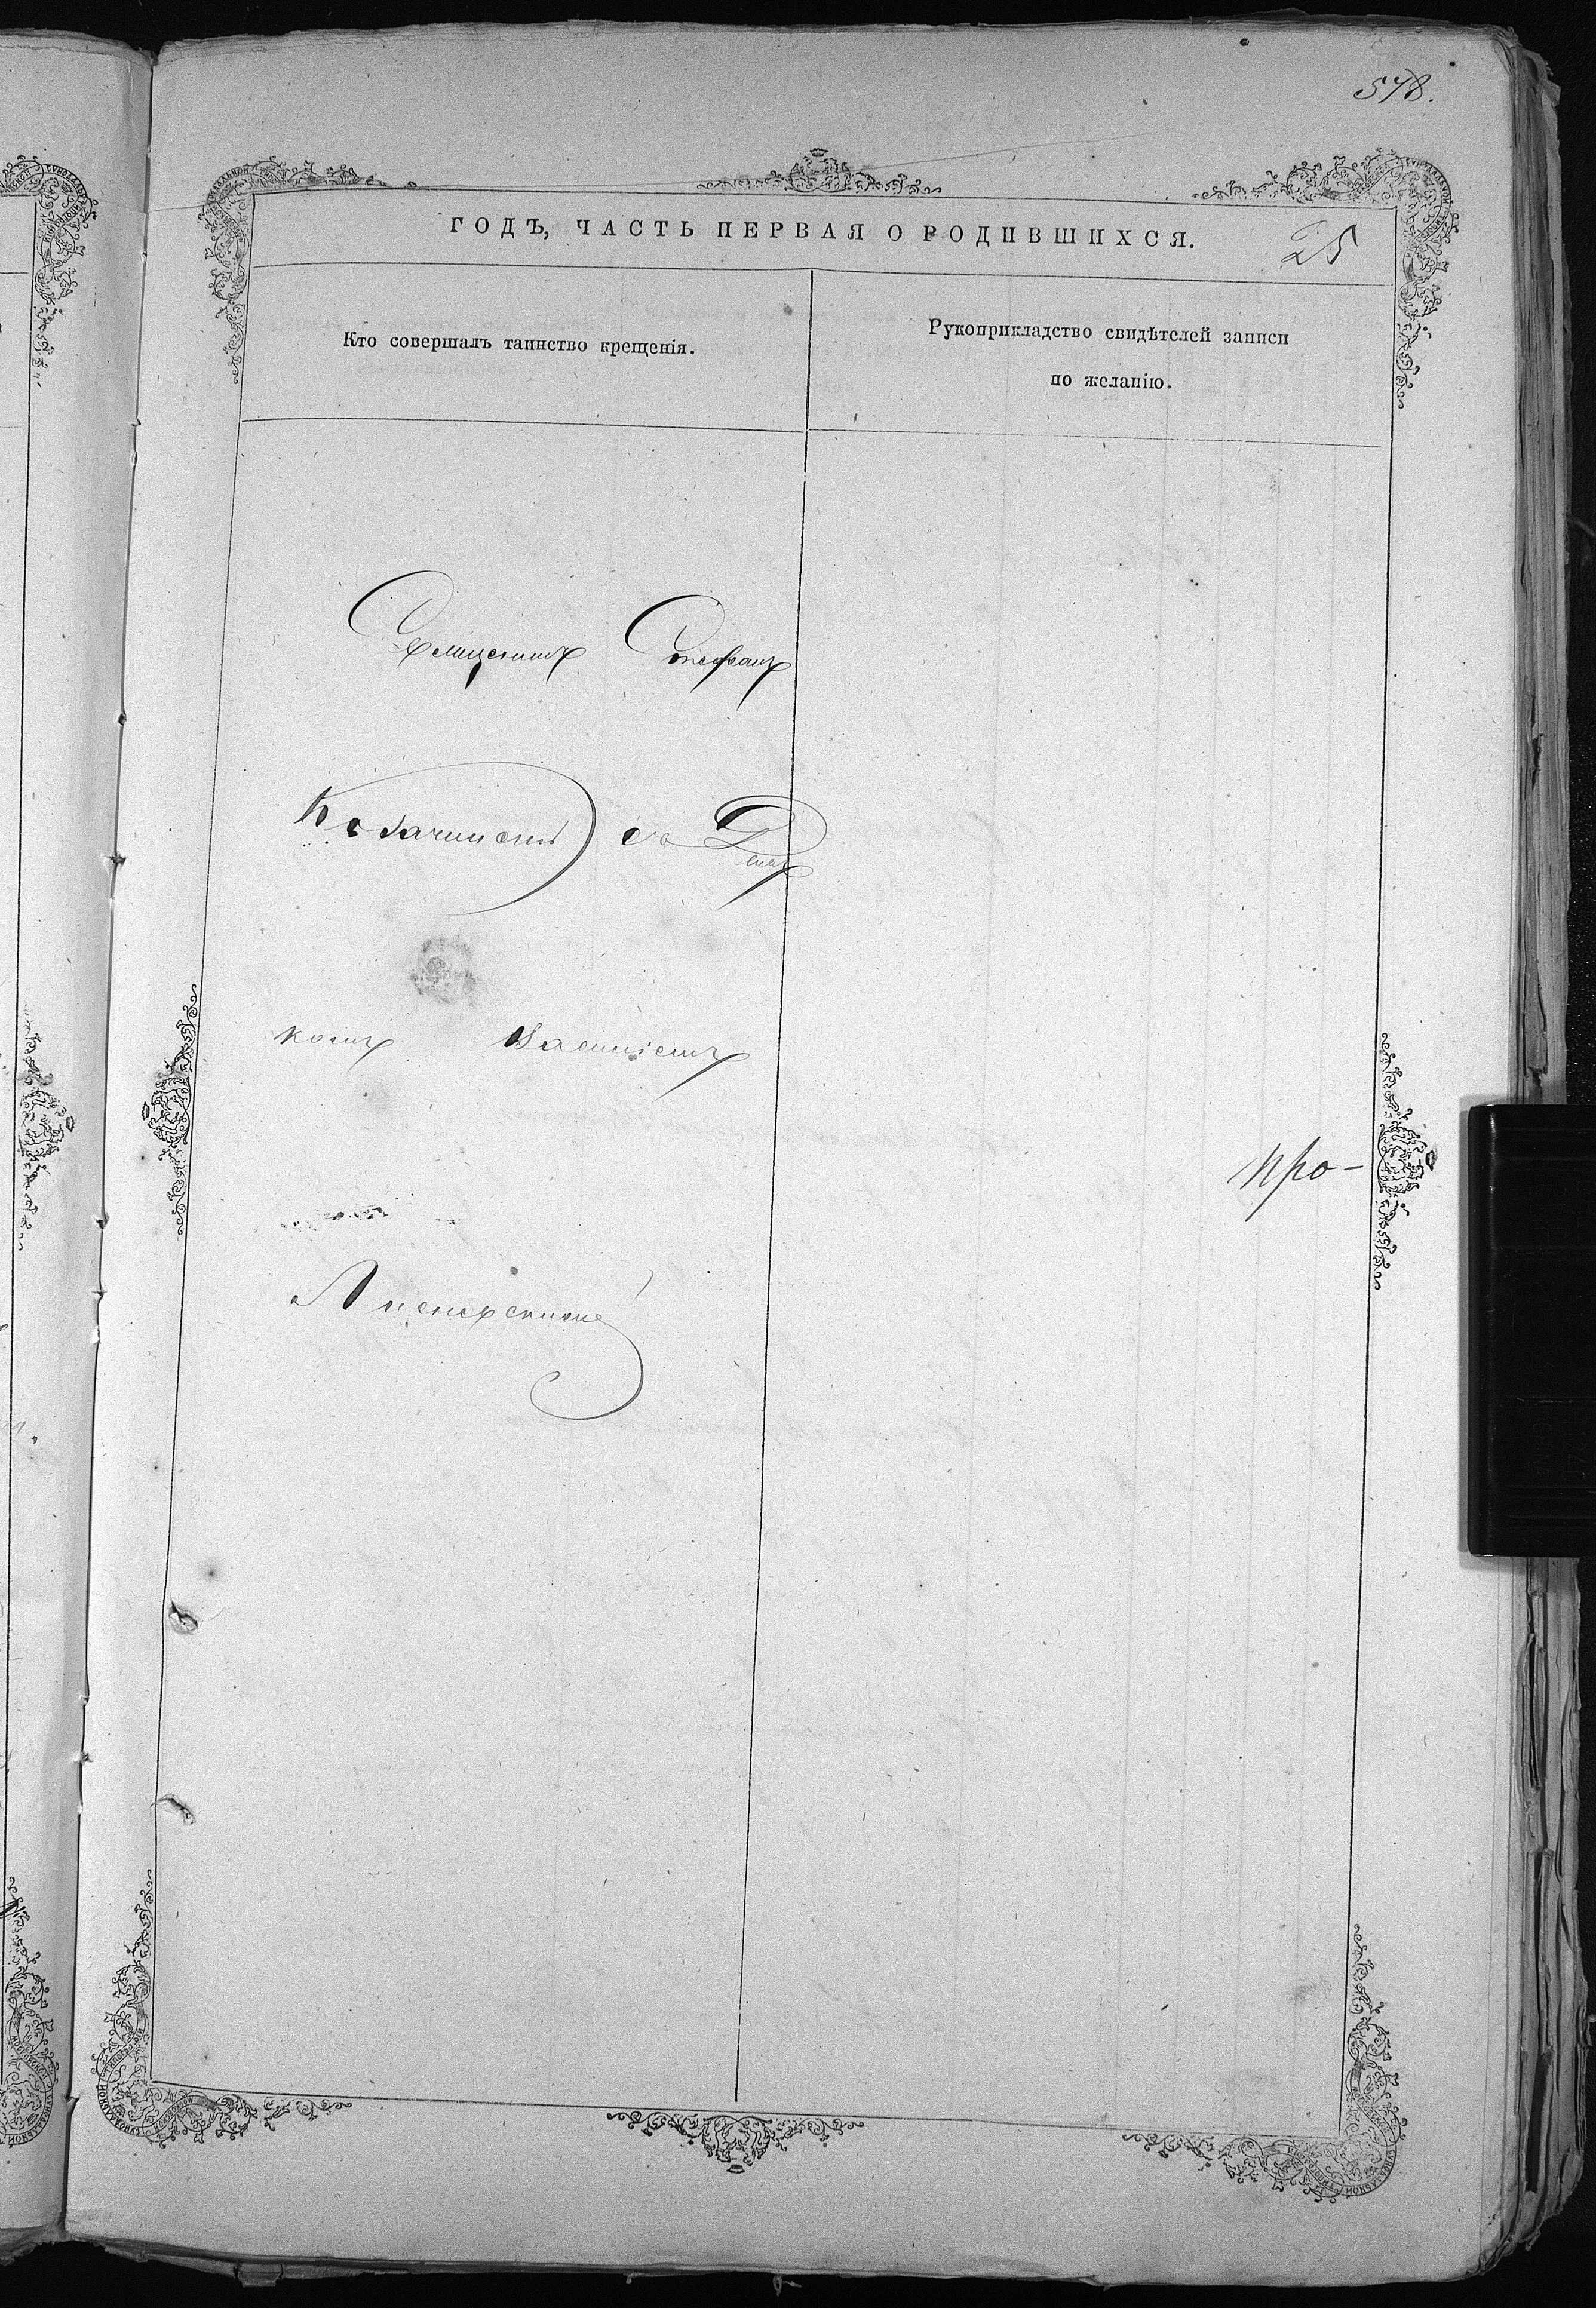 578.
ГОДЪ, ЧАСТЬ ПЕРВАЯ О РОДИВШИХСЯ.
25
Кто совершалъ таинство крещенія.
Рукоприкладство свидѣтелей записи
по желанію.
Священникъ Стефанъ
Козачинскій съ Дья
комъ Василіемъ
про-